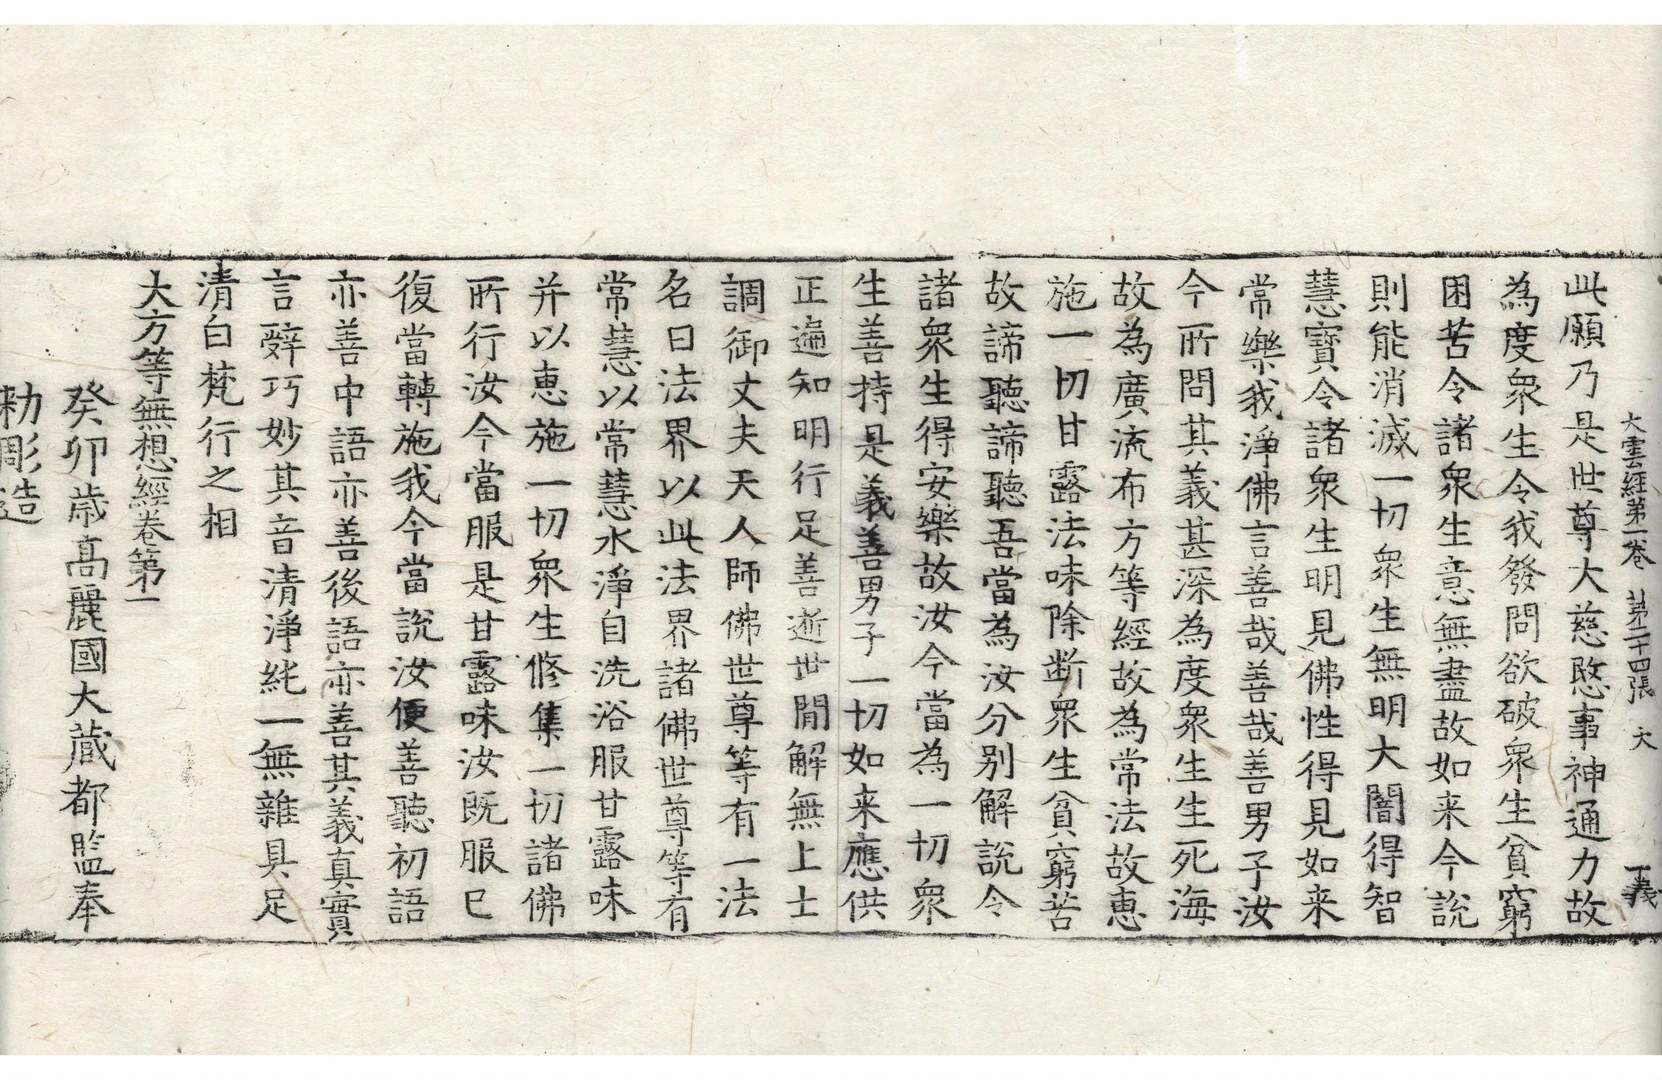 大雲経第一卷 第二十四張 大
此願乃是世尊大慈愍事神通力故
為度眾生令我發問欲破眾生貧窮
困苦令諸眾生意無盡故如来今說
則能消滅一切眾生無明大闇得智
慧寶令諸眾生明見佛性得見如来
常樂我淨佛言善哉善哉善男子汝
今所問其義甚深為度眾生生死海
故為廣流布方等經故為常法故惠
施一切甘露法味除断眾生貧窮苦
故諦聽諦聽吾當為汝分别解說令
諸眾生得安樂故汝今當為一切眾
生善持是義善男子一切如来應供
正遍知明行足善逝世間解無上士
調御丈夫天人師佛世尊等有一法
名曰法界以此法界諸佛世尊等有
常慧以常慧水淨自洗浴服甘露味
并以惠施一切眾生修集一切諸佛
所行汝今當服是甘露味汝既服已
復當轉施我今當說汝便善聽初語
亦善中語亦善後語亦善其義真實
言辭巧妙其音清淨純一無雜具足
清白梵行之相
大方等無想經卷第一
癸卯歲高麗國大藏都監奉
勅彫造